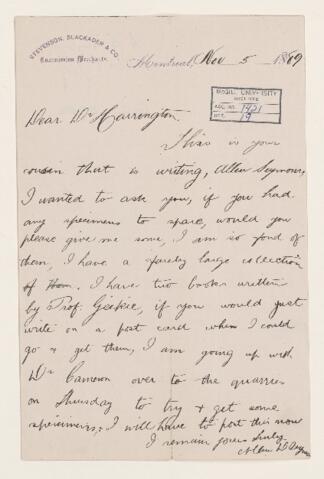 STEVENSON, BLACKADER & CO.
Montreal, Nov 5 1889
McGILL UNIVERSITY
ACC. NO. 1421
REF. 19
Dear Dr Harrington.
This is your
cousin that is writing, Allen Seymour,
I wanted to ask you, if you had
any specimens to spare, would you
please give me some, I am so fond of
them, I have a fairly large collection
of them. I have two books written
by Prof. Geikie, if you would just
write on a post card when I could
go & get them, I am going up with
Dr Cameron over to the quarries
on Thursday to try & get some
specimens, I will have to post this now
I remain yours truly
Allen